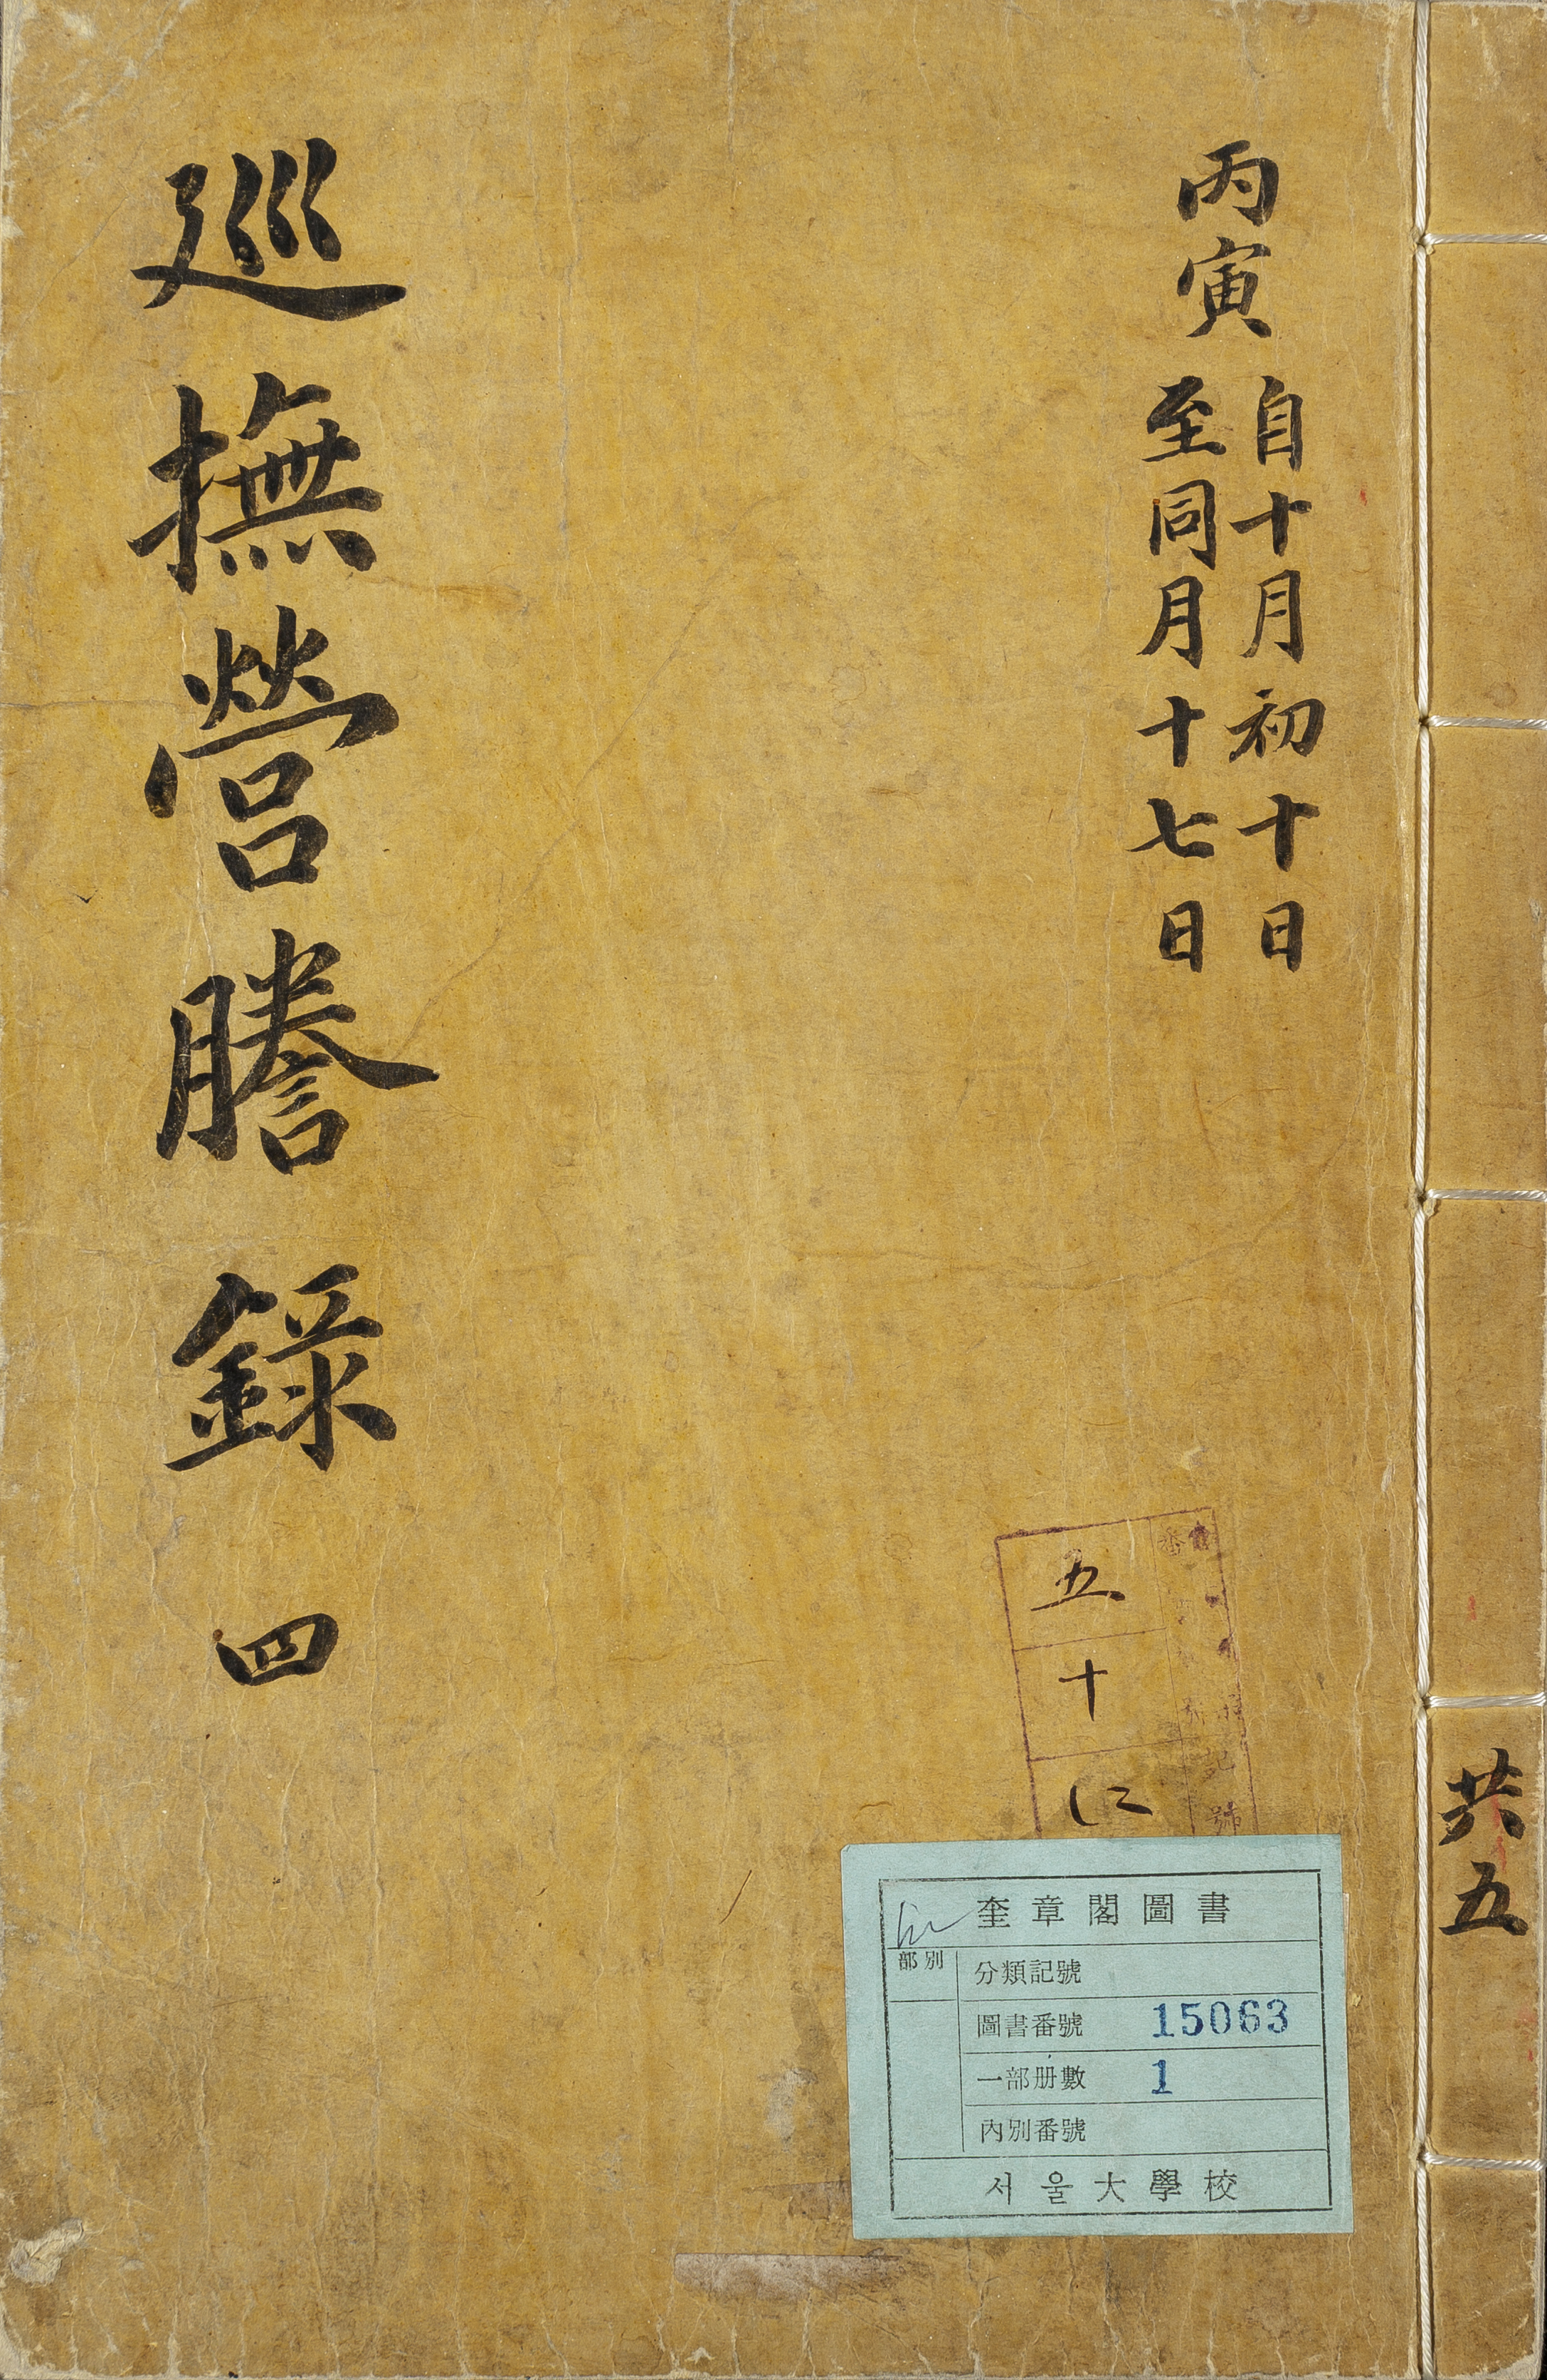 丙寅
自十月初十日
至同月十七日
廵撫營謄錄 四
共五
五
十
記號
奎章閣圖書
部別
分類記號
圖書番號 15063
一部册數 1
內別番號
서울大學校